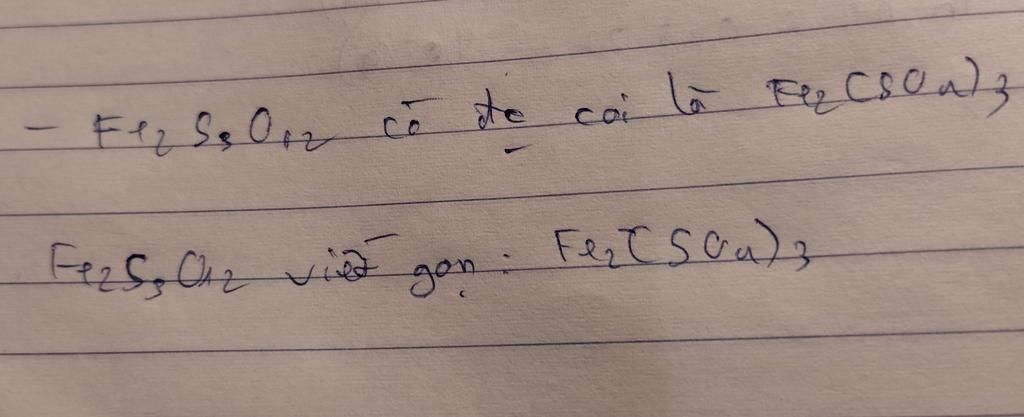 - Fe2S3O12 có để coi là Fe2(SO4)3
Fe2S3O12 viết gọn: Fe2(SO4)3